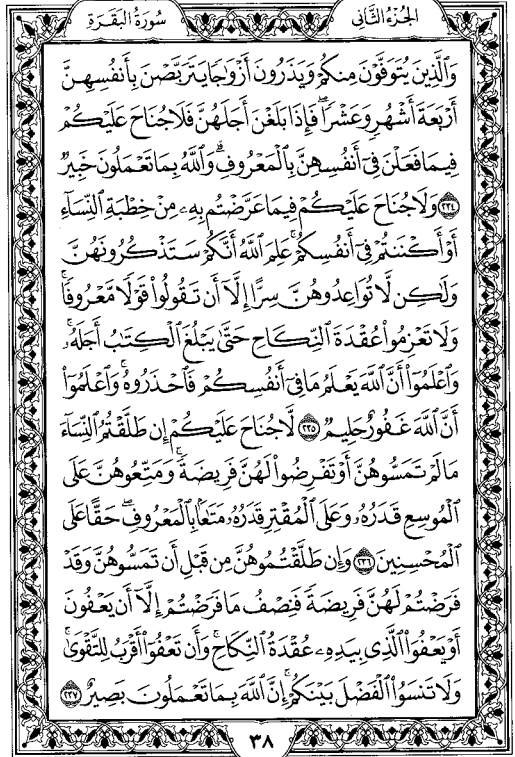 سُورَةُ البَقَرَة
الجُزءُ الثَّانِى
وَٱلَّذِينَ يُتَوَفَّوْنَ مِنكُمْ وَيَذَرُونَ أَزْوَٰجًا يَتَرَبَّصْنَ بِأَنفُسِهِنَّ
أَرْبَعَةَ أَشْهُرٍ وَعَشْرًا ۖ فَإِذَا بَلَغْنَ أَجَلَهُنَّ فَلَا جُنَاحَ عَلَيْكُمْ
فِيمَا فَعَلْنَ فِىٓ أَنفُسِهِنَّ بِٱلْمَعْرُوفِ ۗ وَٱللَّهُ بِمَا تَعْمَلُونَ خَبِيرٌ
٢٣٤ وَلَا جُنَاحَ عَلَيْكُمْ فِيمَا عَرَّضْتُم بِهِۦ مِنْ خِطْبَةِ ٱلنِّسَآءِ
أَوْ أَكْنَنتُمْ فِىٓ أَنفُسِكُمْ ۚ عَلِمَ ٱللَّهُ أَنَّكُمْ سَتَذْكُرُونَهُنَّ
وَلَٰكِن لَّا تُوَاعِدُوهُنَّ سِرًّا إِلَّآ أَن تَقُولُوا۟ قَوْلًا مَّعْرُوفًا ۚ
وَلَا تَعْزِمُوا۟ عُقْدَةَ ٱلنِّكَاحِ حَتَّىٰ يَبْلُغَ ٱلْكِتَٰبُ أَجَلَهُۥ ۚ
وَٱعْلَمُوٓا۟ أَنَّ ٱللَّهَ يَعْلَمُ مَا فِىٓ أَنفُسِكُمْ فَٱحْذَرُوهُ ۚ وَٱعْلَمُوٓا۟
أَنَّ ٱللَّهَ غَفُورٌ حَلِيمٌ ٢٣٥ لَّا جُنَاحَ عَلَيْكُمْ إِن طَلَّقْتُمُ ٱلنِّسَآءَ
مَا لَمْ تَمَسُّوهُنَّ أَوْ تَفْرِضُوا۟ لَهُنَّ فَرِيضَةً ۚ وَمَتِّعُوهُنَّ عَلَى
ٱلْمُوسِعِ قَدَرُهُۥ وَعَلَى ٱلْمُقْتِرِ قَدَرُهُۥ مَتَٰعًۢا بِٱلْمَعْرُوفِ ۖ حَقًّا عَلَى
ٱلْمُحْسِنِينَ ٢٣٦ وَإِن طَلَّقْتُمُوهُنَّ مِن قَبْلِ أَن تَمَسُّوهُنَّ وَقَدْ
فَرَضْتُمْ لَهُنَّ فَرِيضَةً فَنِصْفُ مَا فَرَضْتُمْ إِلَّآ أَن يَعْفُونَ
أَوْ يَعْفُوَا۟ ٱلَّذِى بِيَدِهِۦ عُقْدَةُ ٱلنِّكَاحِ ۚ وَأَن تَعْفُوٓا۟ أَقْرَبُ لِلتَّقْوَىٰ ۚ
وَلَا تَنسَوُا۟ ٱلْفَضْلَ بَيْنَكُمْ ۚ إِنَّ ٱللَّهَ بِمَا تَعْمَلُونَ بَصِيرٌ ٢٣٧
٣٨